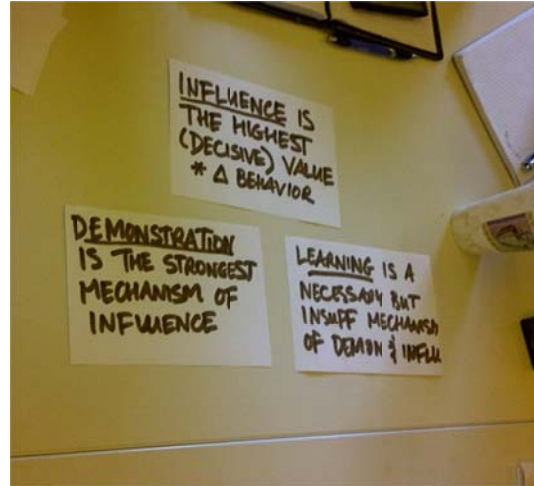 INFLUENCE IS
THE HIGHEST
(DECISIVE) VALUE
* Δ BEHAVIOR
DEMONSTRATION
IS THE STRONGEST
MECHANISM OF
INFLUENCE
LEARNING IS A
NECESSARY BUT
INSUFF MECHANISM
OF DEMON & INFLU